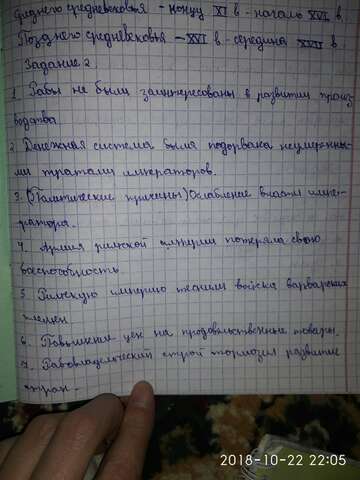 Среднего средневековья - концу XI в - начало XVI в.
Позднего средневековья - XVI в - середина XVII в.
Задание 2.
1. Рабы не были заинтересованы в развитии произ-
водства.
2. Денежная система была подорвана неумеренны-
ми тратами императоров.
3. (Политические причины) Ослабление власти импе-
ратора.
4. Армия римской империи потеряла свою
боеспособность.
5. Римскую империю теснили войска варварских
племен
6. Повышение цен на продовольственные товары.
7. Рабовладельческий строй тормозил развитие
стран.
2018-10-22 22:05